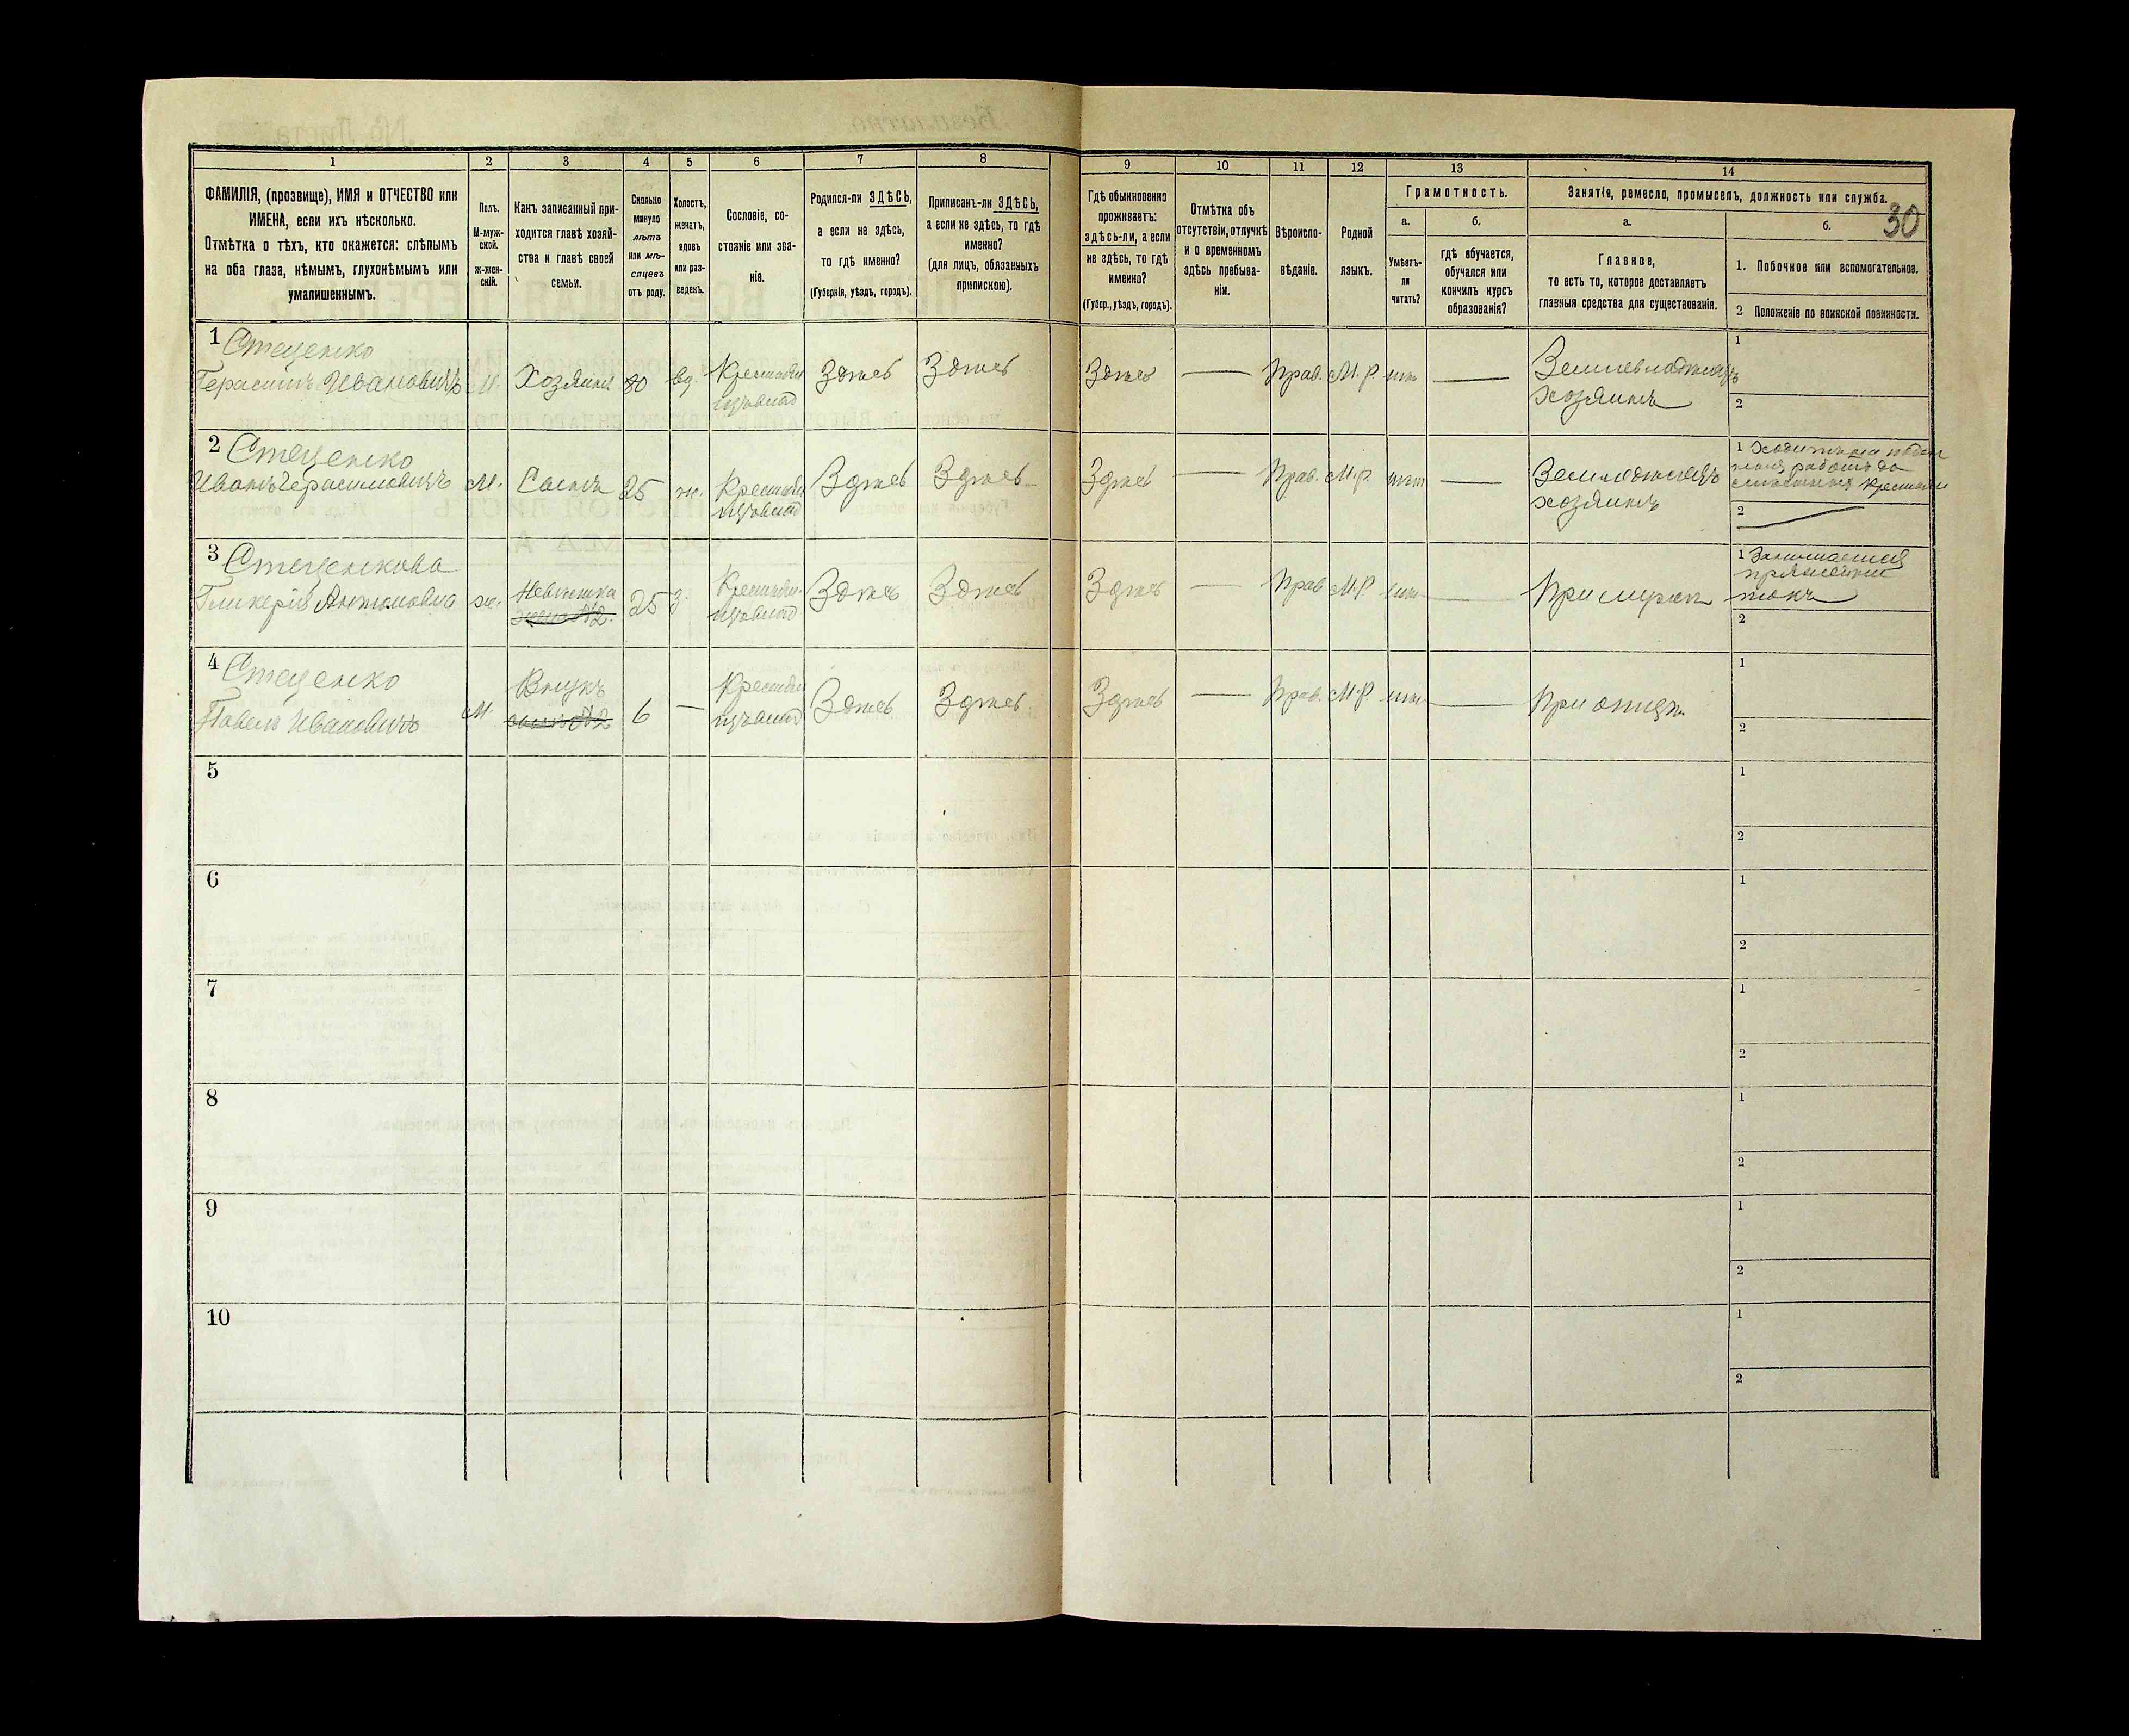 1 2 3 4 5 6 7 8 9 10 11 12 13 14
30
ФАМИЛІЯ, (прозвище), ИМЯ и ОТЧЕСТВО или
ИМЕНА, если ихъ нѣсколько.
Отмѣтка о тѣхъ, кто окажется: слѣпымъ
на оба глаза, нѣмымъ, глухонѣмымъ или
умалишеннымъ.
Полъ.
М-муж-
ской.
Ж-жен-
скій.
Какъ записанный при-
ходится главѣ хозяй-
ства и главѣ своей
семьи.
Сколько
минуло
лѣтъ
или мѣ-
сяцевъ
отъ роду.
Холостъ,
женатъ,
вдовъ
или раз-
веденъ.
Сословіе, со-
стояніе или зва-
ніе.
Родился-ли ЗДѢСЬ,
а если не здѣсь,
то гдѣ именно?
(Губернія, уѣздъ, городъ).
Приписанъ-ли ЗДѢСЬ,
а если не здѣсь, то гдѣ
именно?
(для лицъ, обязанныхъ
припискою).
Гдѣ обыкновенно
проживаетъ:
здѣсь-ли, а если
не здѣсь, то гдѣ
именно?
(Губер., уѣздъ, городъ).
Отмѣтка объ
отсутствіи, отлучкѣ
и о временномъ
здѣсь пребыва-
ніи.
Вѣроиспо-
вѣданіе.
Родной
языкъ.
Грамотность.
а.
Умѣетъ-
ли
читать?
б.
гдѣ обучается,
обучался или
кончилъ курсъ
образованія?
Занятіе, ремесло, промыселъ, должность или служба.
а.
Главное,
то есть то, которое доставляетъ
главныя средства для существованія.
б.
1. Побочное или вспомогательное.
2 Положеніе по воинской повинности.
1 Стеценко
Герасимъ Ивановичъ М. Хозяинъ вд. Здѣсь Здѣсь Здѣсь — Прав. М.Р. нѣтъ —
хозяинъ
1
2
2 Стеценко
Иванъ Герасимовичъ М. Сынъ 25 ж. Здѣсь Здѣсь Здѣсь — Прав. М.Р. нѣтъ —
хозяинъ
1
2
3 Стеценкова
Гликерія Антоновна ж. Невѣстка 25 З. Здѣсь Здѣсь Здѣсь — Прав. М.Р. нѣтъ — При мужѣ
жена №2.
1 Занимается
2
4 Стеценко
Павелъ Ивановичъ М. Внукъ 6 — Здѣсь Здѣсь Здѣсь — Прав. М.Р. нѣтъ — При отцѣ
сынъ №2
1
2
5
1
2
6
1
2
7
1
2
8
1
2
9
1
2
10
1
2